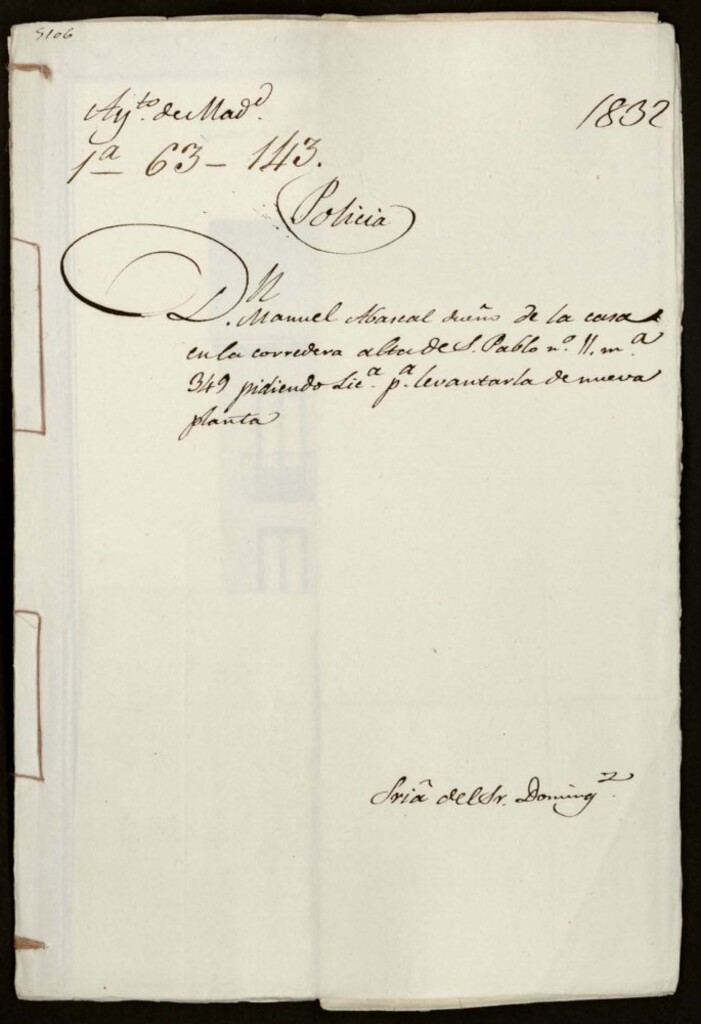 5106
Ay.to de Mad.d
1832
1a 63 - 143.
Policia
D.n Manuel Abascal dueño de la casa
en la corredera alta de S. Pablo n.o 11. m.a
349 pidiendo Lic.a p.a levantarla de nueva
planta
Sria del Sr. Doming.z